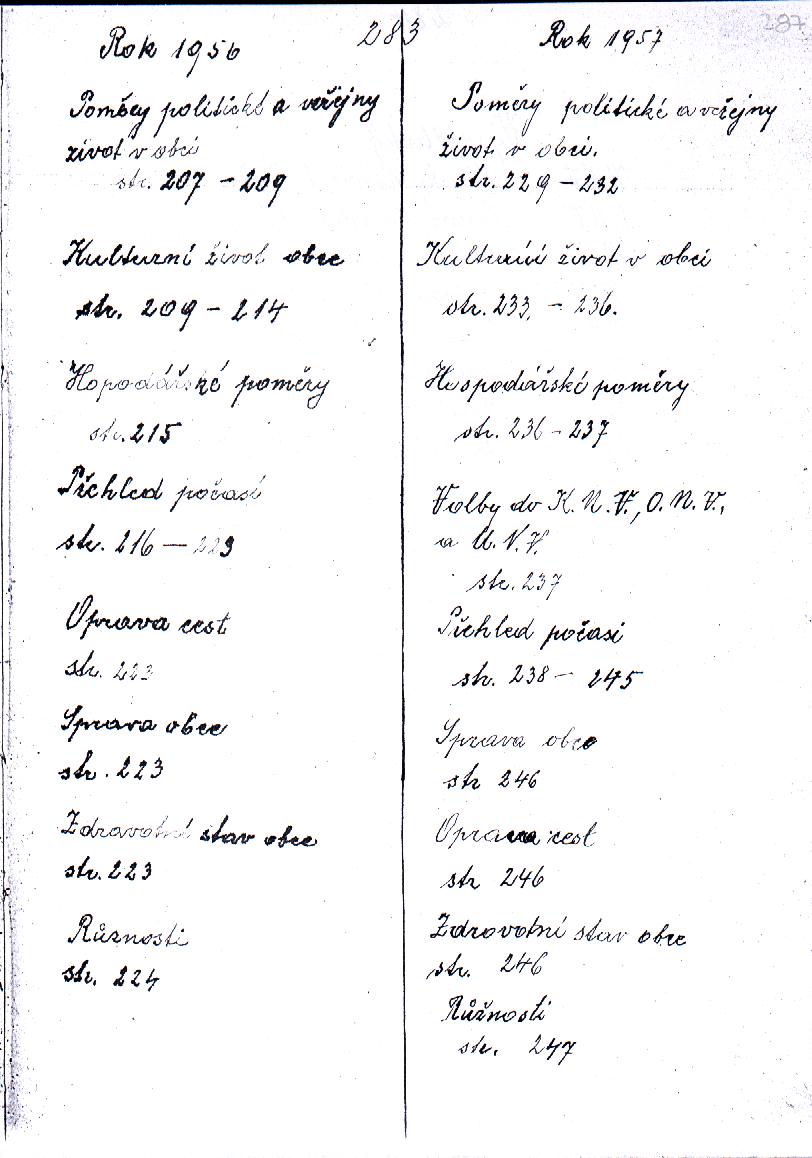 283
287
Rok 1956
Poměry politické a veřejny
život v obci
str. 207 - 209
Kulturní život obce
str. 209 - 214
Hopodářské poměry
str. 215
Přehled počasí
str. 216 — 223
Oprava cest
str. 223
Sprava obce
str. 223
Zdravotní stav obce
str. 223
Různosti
str. 224
Rok 1957
Poměry politické a veřejny
život v obci.
str. 229 - 232
Kulturní život v obci
str. 233, - 236.
Hospodářské poměry
str. 236 - 237
Volby do K.N.V., O.N.V.,
a U.N.V.
str. 237
Přehled počasi
str. 238 - 245
Sprava obce
str 246
Oprava cest
str 246
Zdravotní stav obce
str. 246
Růžnosti
str. 247